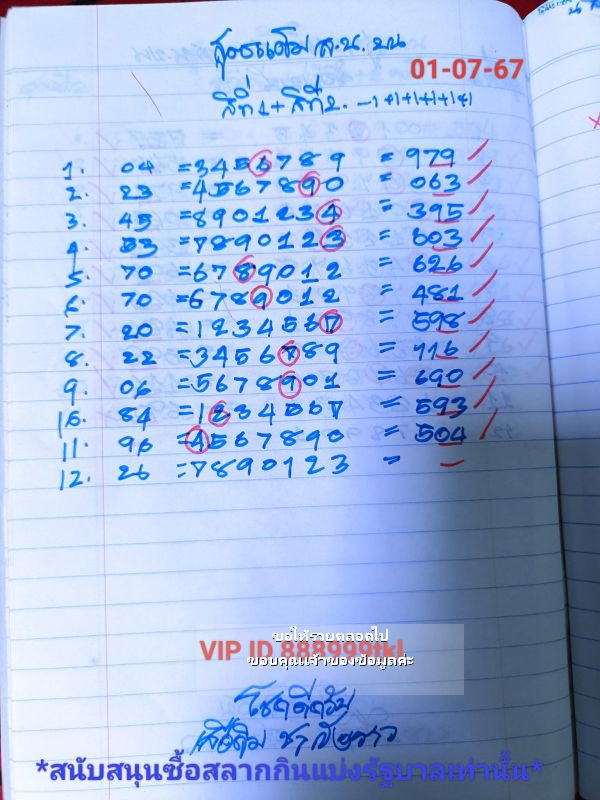 สูตรเดิม ส.น. บน
01-07-67
สิที่1+สิที่2. -1+1+1+1+1+1
1. 04 =3456789 = 979
2. 23 =4567890 = 063
3. 45 =8901234 = 395
4. 53 =7890123 = 603
5. 70 =6789012 = 626
6. 70 =6789012 = 481
7. 20 =1234567 = 598
8. 22 =3456789 = 116
9. 06 =5678901 = 690
10. 84 =1234567 = 593
11. 96 =4567890 = 504
12. 26 =7890123 = –
ขอให้รวยตลอดไป
VIP ID 888999tkl
ขอบคุณเจ้าของข้อมูลค่ะ
โชคดีครับ
*สนับสนุนซื้อสลากกินแบ่งรัฐบาลเท่านั้น*